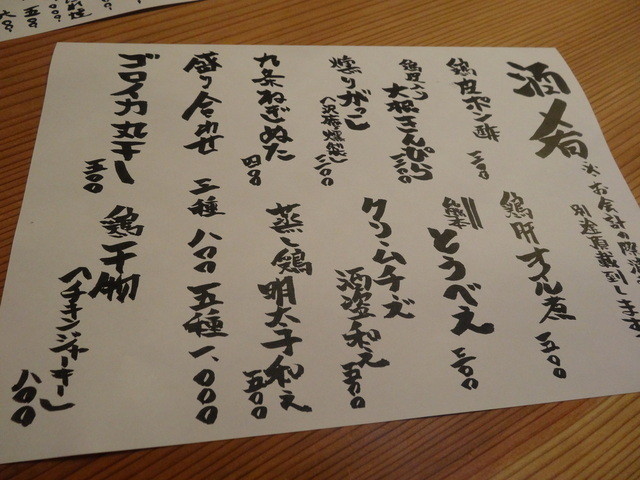 酒肴
※お会計の際
別途頂戴致します
鶏皮ポン酢 三〇〇
鶏肝オイル煮 五〇〇
鶏皮入り
大根きんぴら 三〇〇
とうべえ 三〇〇
燻りがっこ
三〇〇
クリームチーズ
酒盗和え 五〇〇
九条ねぎぬた 四〇〇
蒸し鶏明太子和え 五〇〇
盛り合わせ 三種 八〇〇 五種 一、〇〇〇
ゴロイカ丸干し 五〇〇
鶏干物
(チキンジャーキー) 八〇〇